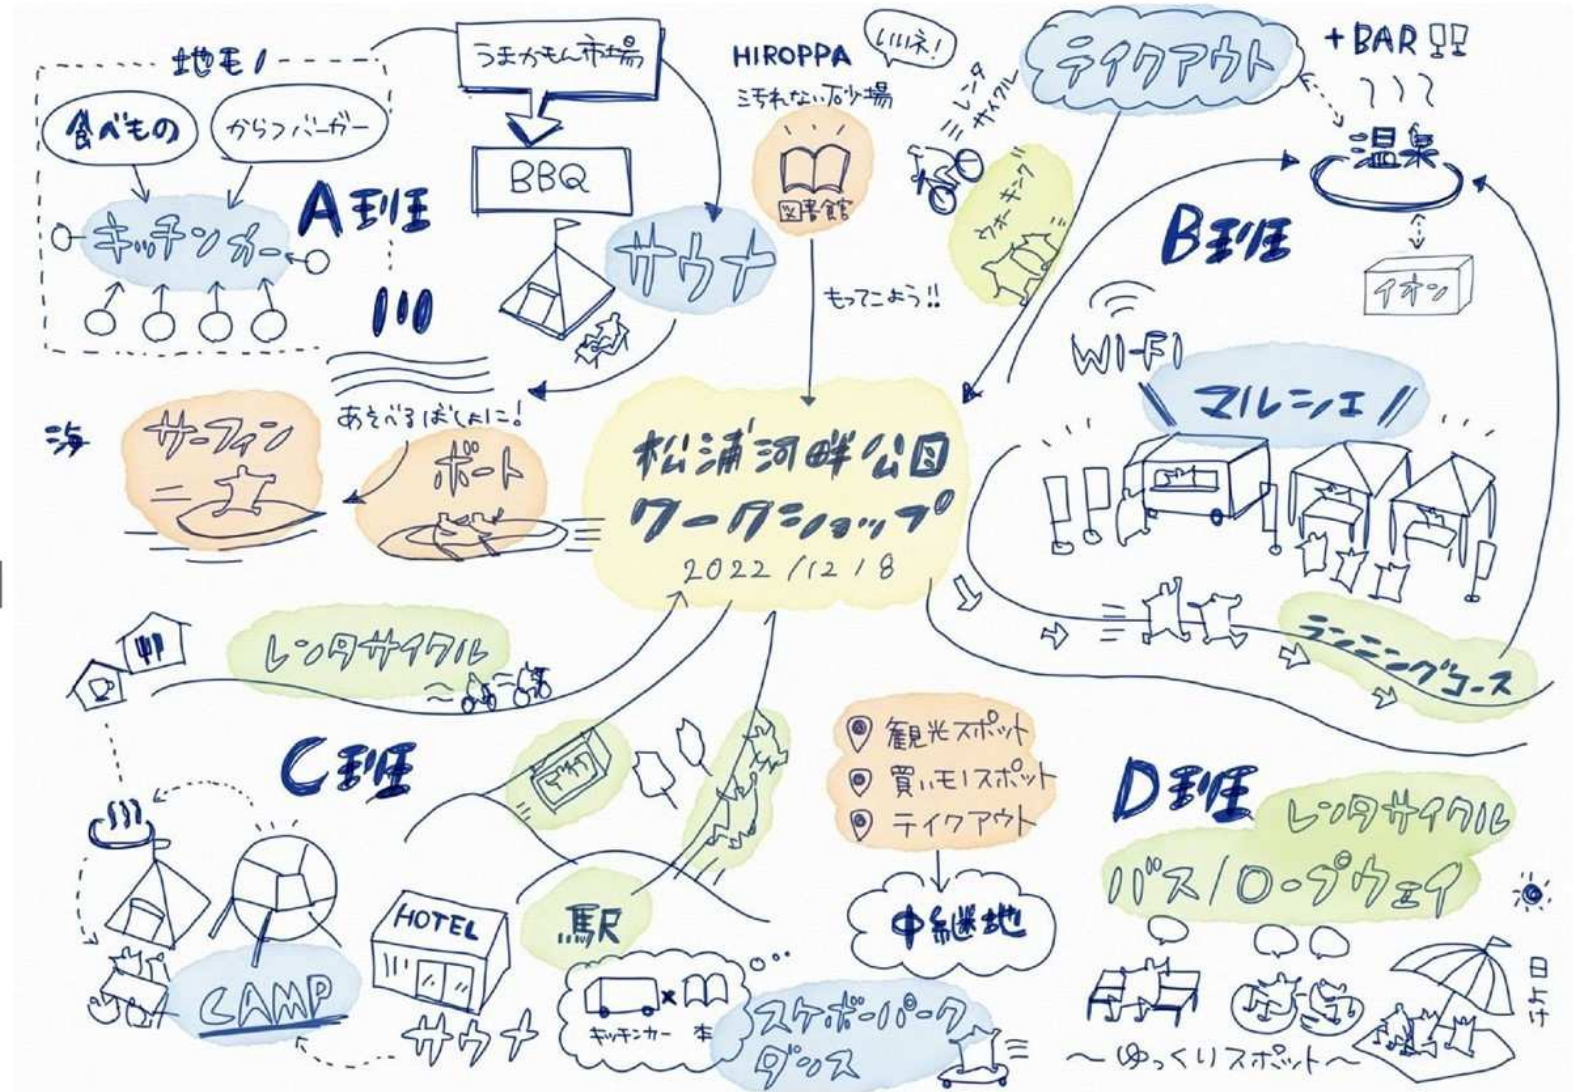 地モノ
食べもの
からつバーガー
キッチンカー
A班
うまかもん市場
BBQ
サウナ
川
あそべるばしょに!
海
サーフィン
ボート
HIROPPA
いいネ!
汚れない砂場
図書館
もってこよう!!
レンタ
サイクル
ウォーキング
テイクアウト
+BAR
温泉
イオン
B班
WI-FI
マルシェ
ランニングコース
松浦河畔公園
ワークショップ
2022/12/18
レンタサイクル
C班
駅
HOTEL
サウナ
CAMP
キッチンカー × 本
スケボーパーク
ダンス
観光スポット
買いモノスポット
テイクアウト
中継地
D班
レンタサイクル
バス/ロープウェイ
日よけ
〜ゆっくりスポット〜